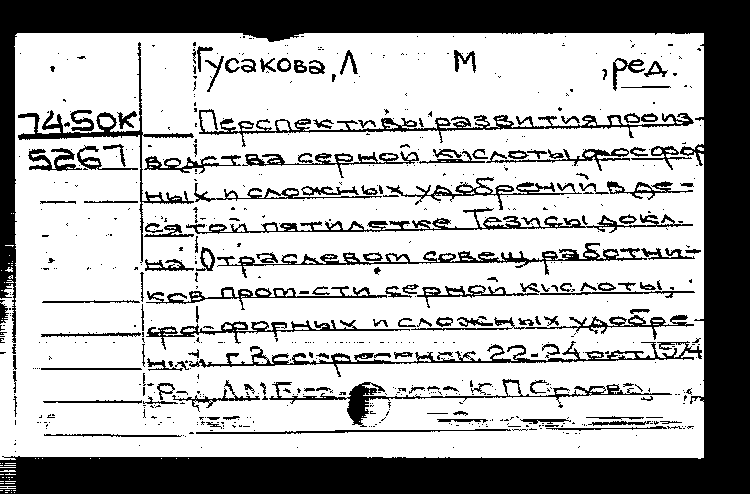 Гусакова, Л М ,ред.
74-50К Перспективы развития произ-
5267 водства серной кислоты, фосфор
ных и сложных удобрений в де-
сятой пятилетке. Тезисы докл.
на Отраслевом совещ. работни-
ков пром-сти серной кислоты,
фосфорных и сложных удобре-
ний. г. Воскресенск. 22-24 окт. 1974
Ред. Л.М. К.П. Орлова